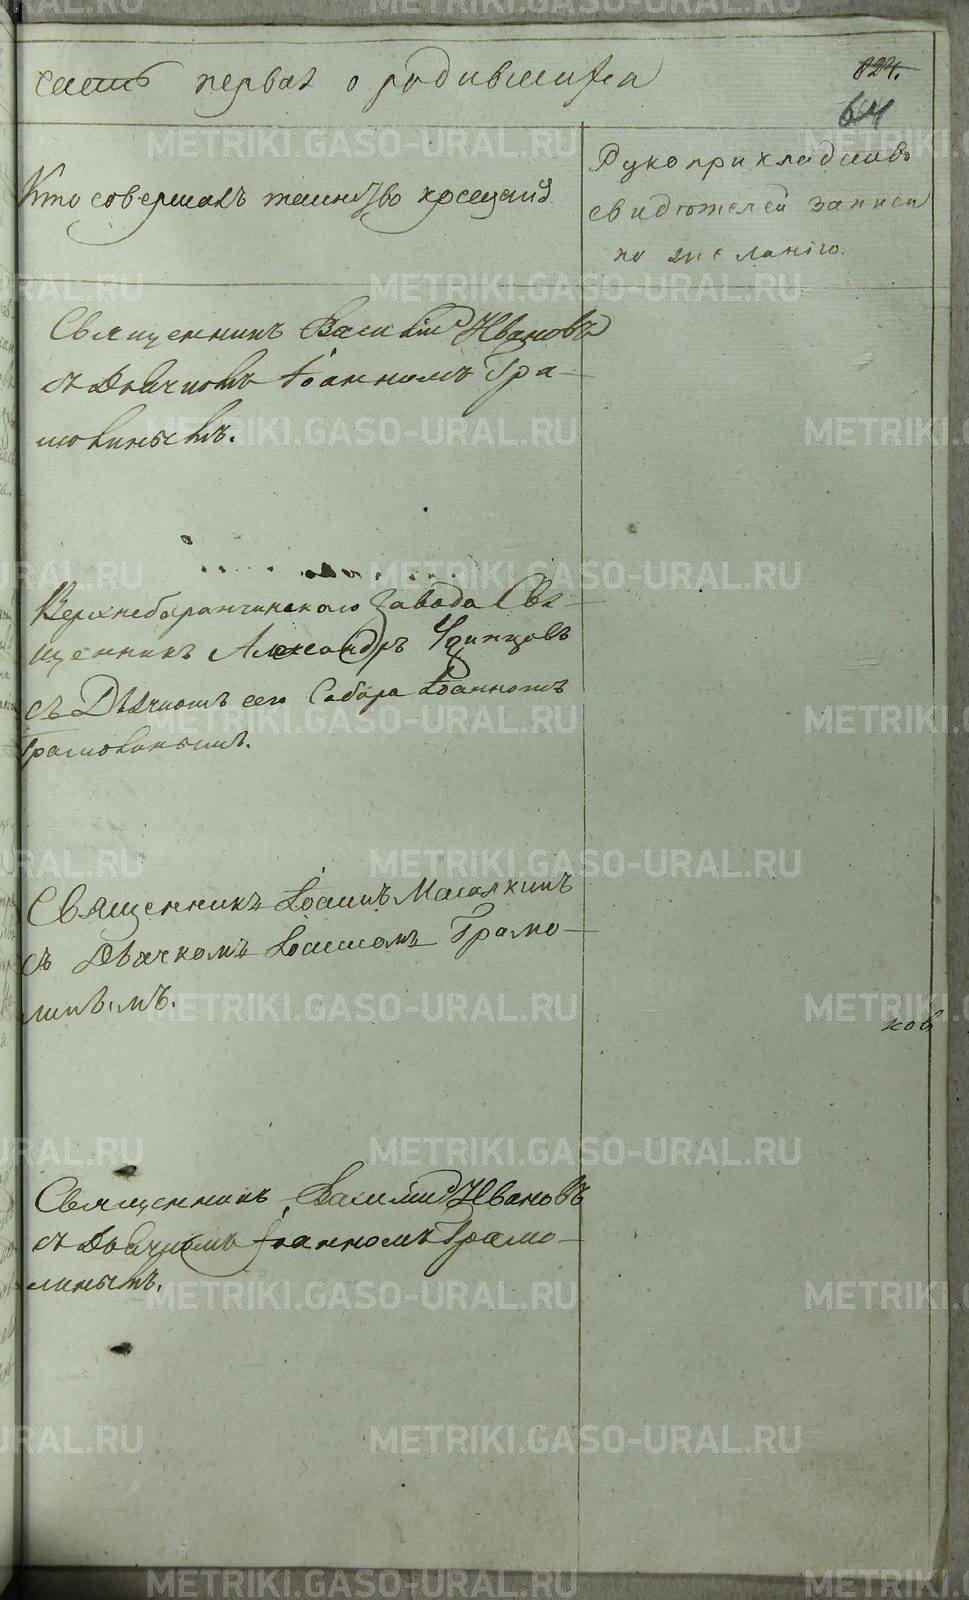 часть первая о родившихся
824.
64
Кто совершалъ таинство крещенія
Рукоприкладство
свидѣтелей записи
по желанію.
Священникъ Василій Ивановъ
съ Дьячкомъ Іоанномъ Гра-
молинымъ.
Верхнебаранчинского завода Свя-
щенникъ Александръ Удинцовъ
съ Дьячкомъ сего Собора Іоанномъ
Грамолинымъ.
Священникъ Іоаннъ Масалкинъ
съ Дьячкомъ Іоанномъ Грамо-
линымъ.
ков
Священникъ Василій Ивановъ
съ Дьячкомъ Іоанномъ Грамо-
линымъ.
METRIKI.GASO-URAL.RU